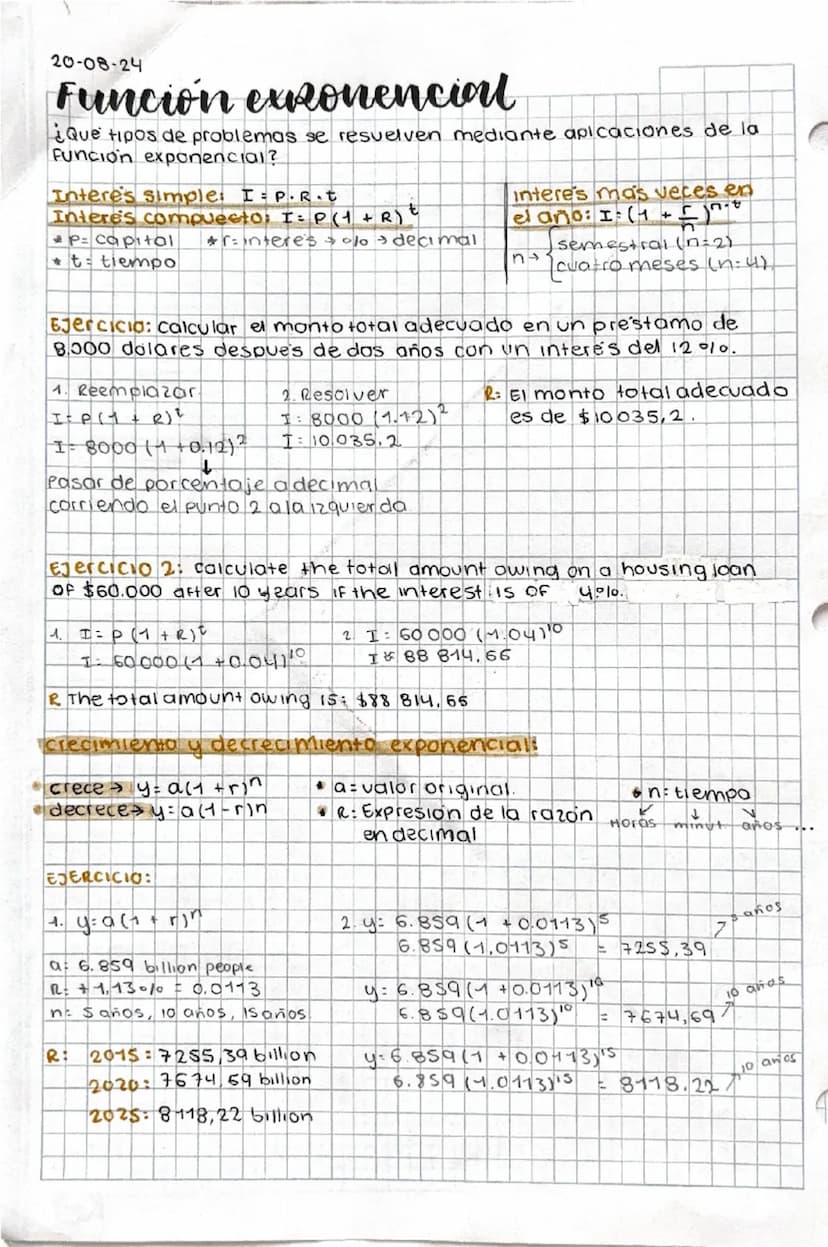 20-08-24
Función exponencial
¿Qué tipos de problemas se resuelven mediante aplicaciones de la
función exponencial?
Interés simple: I = P. R. t
Interés compuesto: I = P(1 + R)^t
* P= capital * r= interés → % → decimal
* t= tiempo
interés más veces en
el año: I: (1 + r/n)^n·t
n → { semestral (n=2)
cuatro meses (n=4)
Ejercicio: calcular el monto total adecuado en un préstamo de
8.000 dolares después de dos años con un interés del 12 %.
1. Reemplazar
I= P(1 + R)^t
I= 8000 (1 +0.12)^2
↓
Pasar de porcentaje a decimal
corriendo el punto 2 a la izquierda
2. Resolver
I: 8000 (1.12)^2
I: 10.035.2
R: El monto total adecuado
es de $10035,2.
Ejercicio 2: calculate the total amount owing on a housing loan
of $60.000 after 10 years if the interest is of 4%.
1. I= P (1 + R)^t
I= 60000 (1 +0.04)^10
2 I: 60000 (1.04)^10
I: 88 814.66
R The total amount owing is: $88 814.66
crecimiento y decrecimiento exponencial:
• crece → y= a(1 +r)^n
• decrece → y= a(1-r)n
• a= valor original.
• R: Expresión de la razón
en decimal
• n: tiempo
Horas minut años ...
EJERCICIO:
1. y=a(1 + r)^n
a: 6.859 billion people
R: +1,13% = 0.0113
n: 5 años, 10 años, 15 años
R: 2015: 7255,39 billion
2020: 7674,69 billion
2025: 8118,22 billion
2. y= 6.859 (1 +0.0113)^5
6.859 (1,0113)^5 = 7255,39 → 5 años
y= 6.859 (1 +0.0113)^10
6.859 (1.0113)^10 = 7674,69 → 10 años
y=6.859 (1 + 0.0113)^15
6.859 (1.0113)^15 = 8118.22 → 10 años